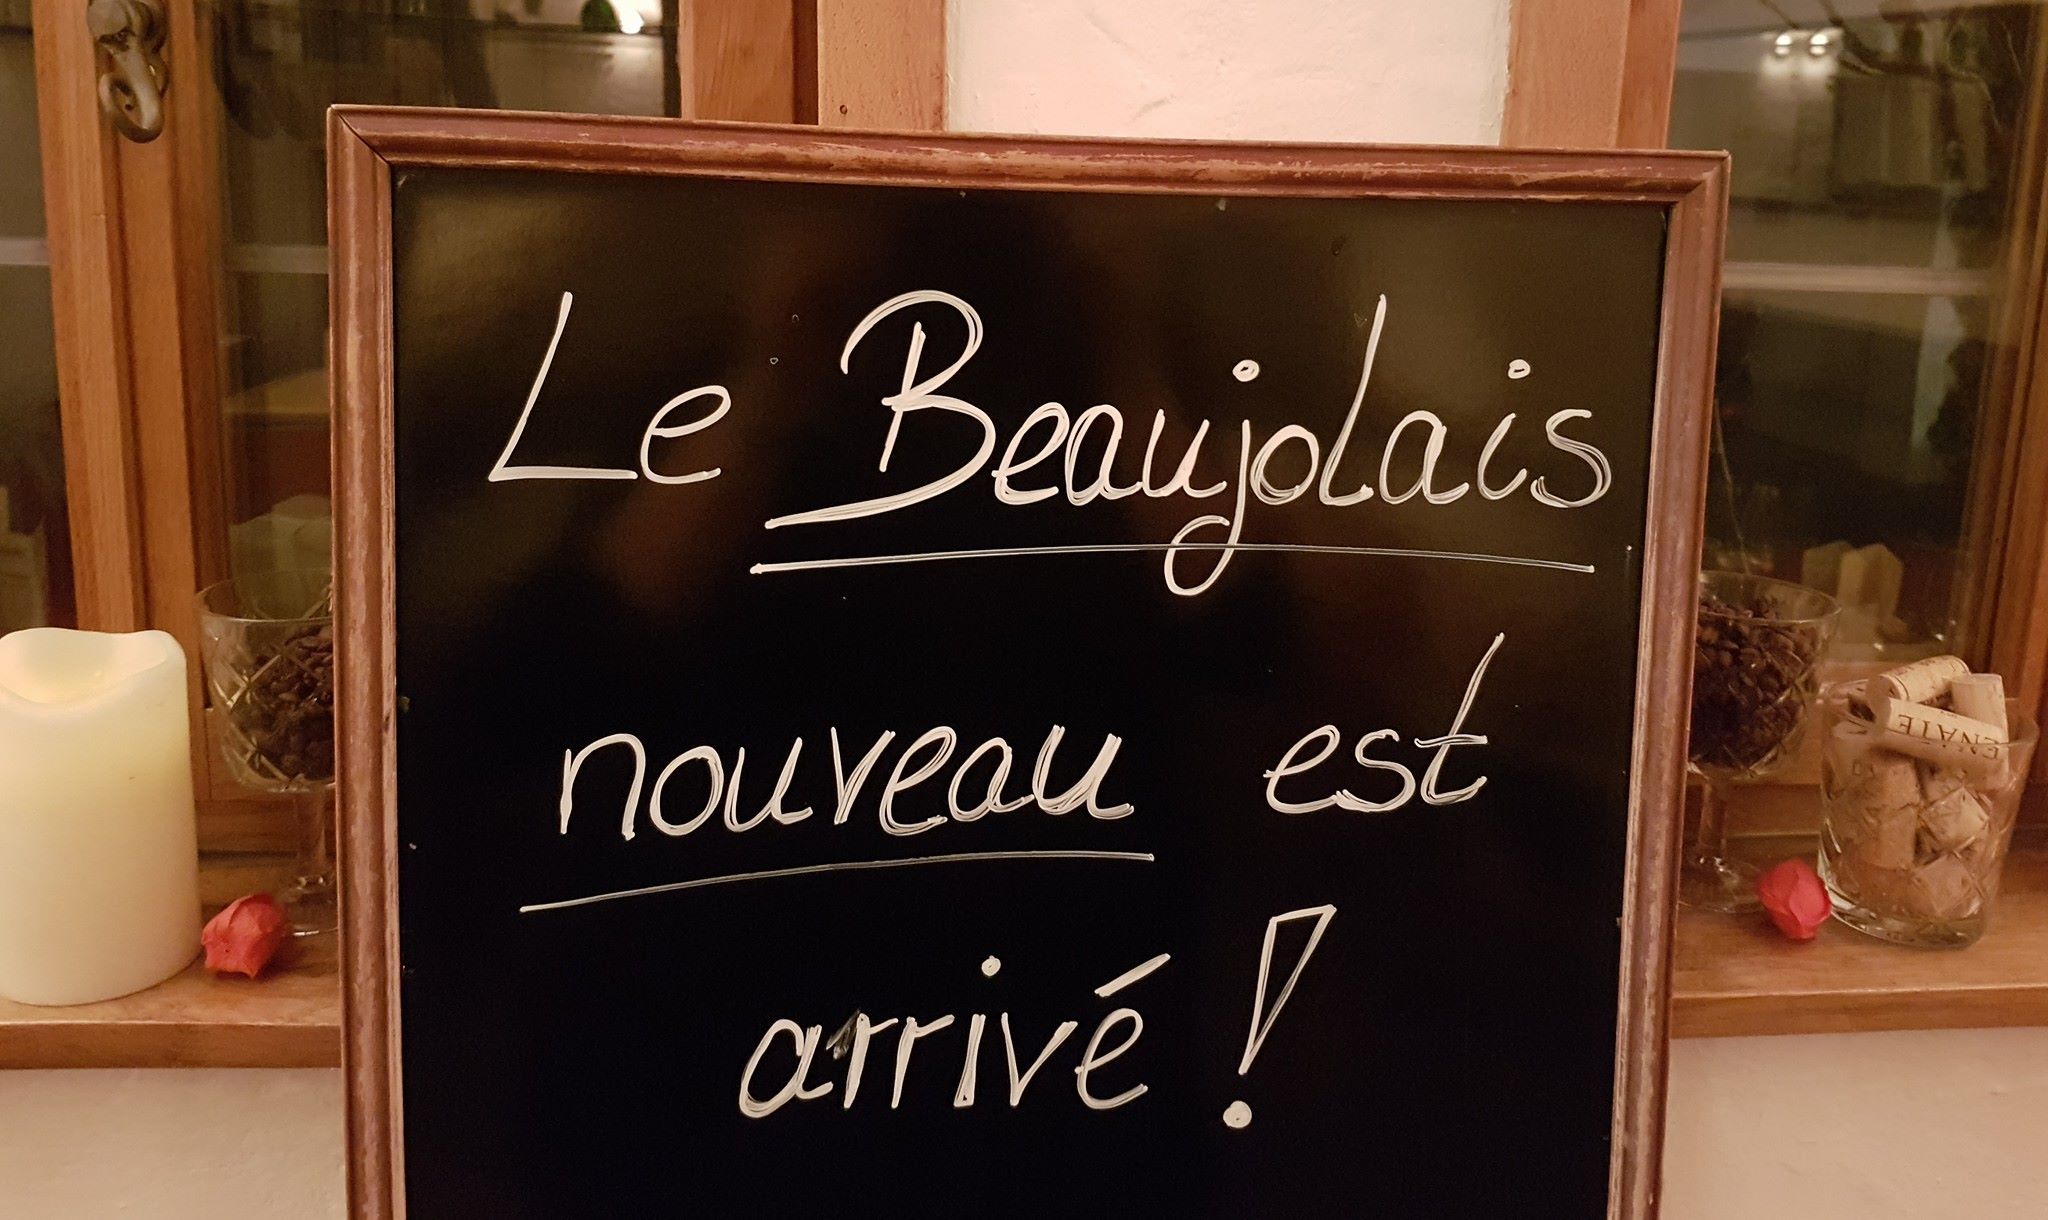 Le Beaujolais
nouveau est
arrivé !
ENATE